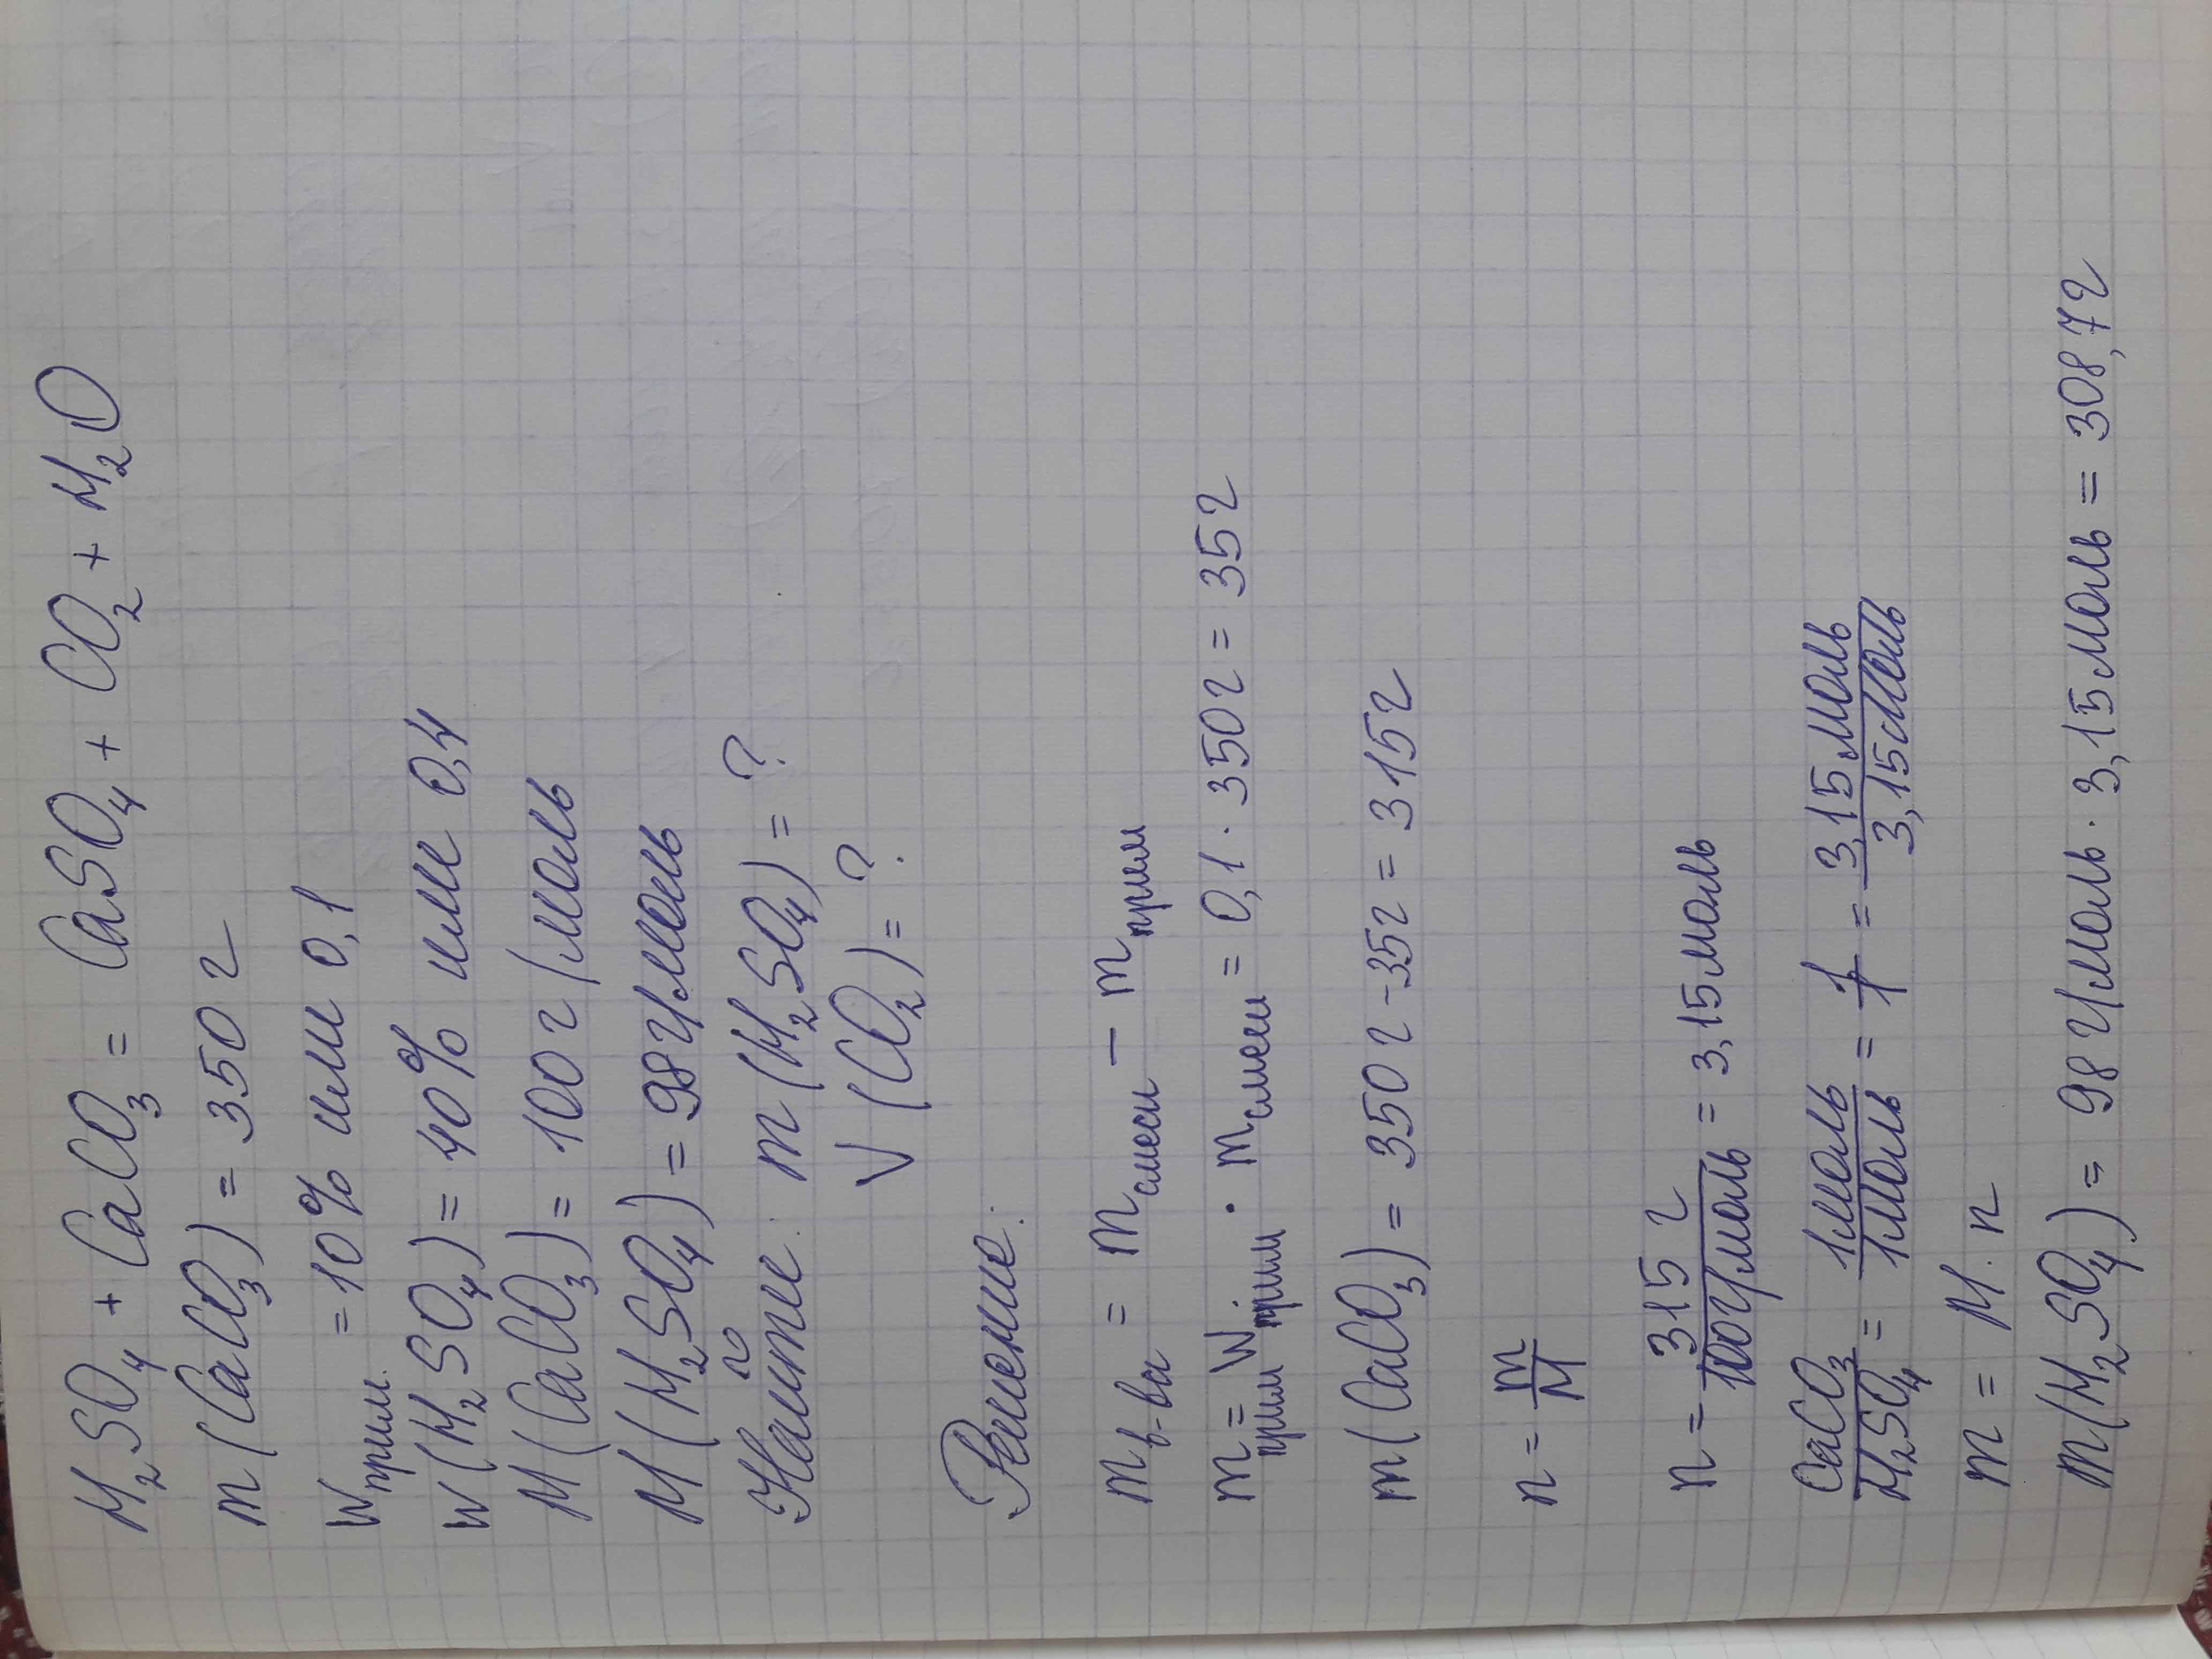 H₂SO₄ + CaCO₃ = CaSO₄ + CO₂ + H₂O
m (CaCO₃) = 350 г
Wприм. = 10% или 0,1
W(H₂SO₄) = 40% или 0,4
M (CaCO₃) = 100 г/моль
M (H₂SO₄) = 98 г/моль
Найти: m (H₂SO₄) = ?
V (CO₂) = ?
Решение:
mв-ва = mсмеси – mприм
mприм = Wприм · mсмеси = 0,1 · 350г = 35г
m(CaCO₃) = 350г - 35г = 315г
n = m/M
n = 315 г/100г/моль = 3,15 моль
CaCO₃/H₂SO₄ = 1моль/1моль = 1/1 = 3,15моль/3,15моль
m = M · n
m(H₂SO₄) = 98 г/моль · 3,15 моль = 308,7г